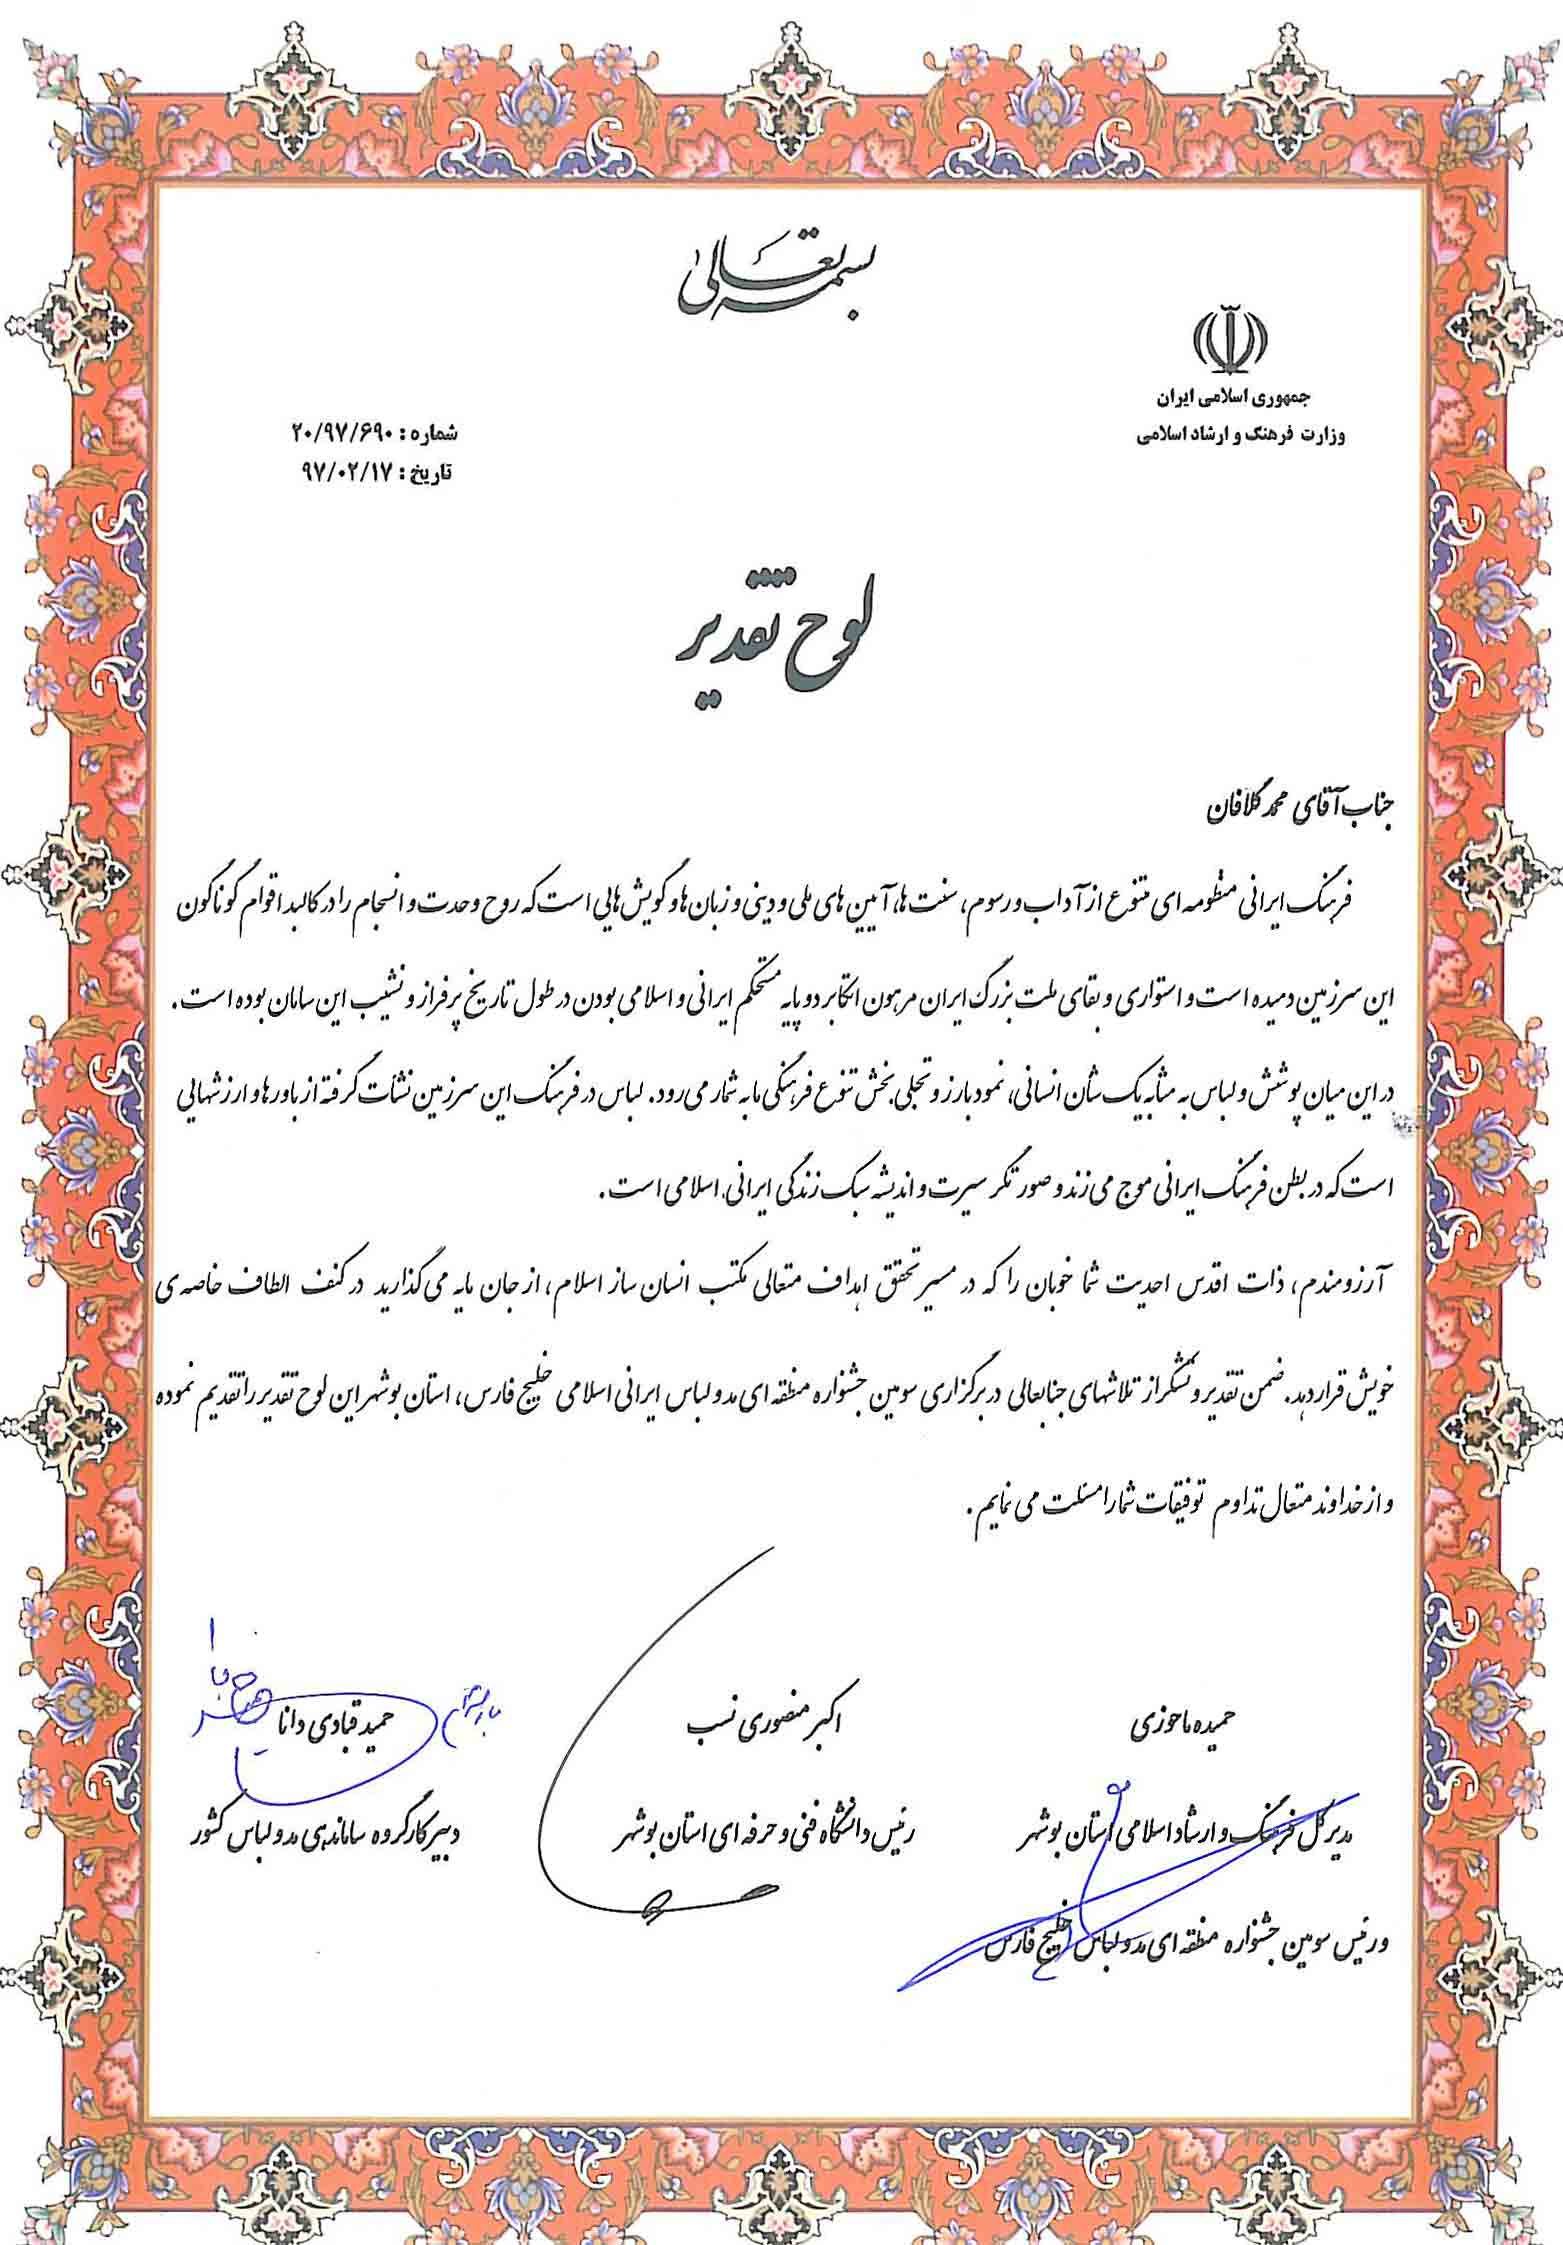 بسمه تعالی
جمهوری اسلامی ایران
وزارت فرهنگ و ارشاد اسلامی
شماره : ۲۰/۹۷/۶۹۰
تاریخ : ۹۷/۰۲/۱۷
لوح تقدیر
جناب آقای محمد گلافان
فرهنگ ایرانی منظومه ای متنوع از آداب و رسوم، سنت ها، آیین های ملی و دینی و زبان ها و گویش هایی است که روح وحدت و انسجام را در کالبد اقوام گوناگون
این سرزمین دمیده است و استواری و بقای ملت بزرگ ایران مرهون اتکا بر دو پایه مستحکم ایرانی و اسلامی بودن در طول تاریخ پر فراز و نشیب این سامان بوده است.
در این میان پوشش و لباس به مثابه یک شأن انسانی، نمود بارز و تجلی بخش تنوع فرهنگی ما به شمار می رود. لباس در فرهنگ این سرزمین نشأت گرفته از باورها و ارزشهایی
است که در بطن فرهنگ ایرانی موج می زند و صورتگر سیرت و اندیشه سبک زندگی ایرانی، اسلامی است.
آرزومندم، ذات اقدس احدیت شما خوبان را که در مسیر تحقق اهداف متعالی مکتب انسان ساز اسلام، از جان مایه می گذارید در کنف الطاف خاصه ی
خویش قرار دهد. ضمن تقدیر و تشکر از تلاشهای جنابعالی در برگزاری سومین جشنواره منطقه ای مد و لباس ایرانی اسلامی خلیج فارس، استان بوشهر این لوح تقدیر را تقدیم نموده
و از خداوند متعال تداوم توفیقات شما را مسئلت می نمایم.
حمیده ماحوزی
مدیرکل فرهنگ و ارشاد اسلامی استان بوشهر
و رئیس سومین جشنواره منطقه ای مد و لباس خلیج فارس
اکبر منصوری نسب
رئیس دانشگاه فنی و حرفه ای استان بوشهر
حمید قبادی دانا
دبیر کارگروه ساماندهی مد و لباس کشور